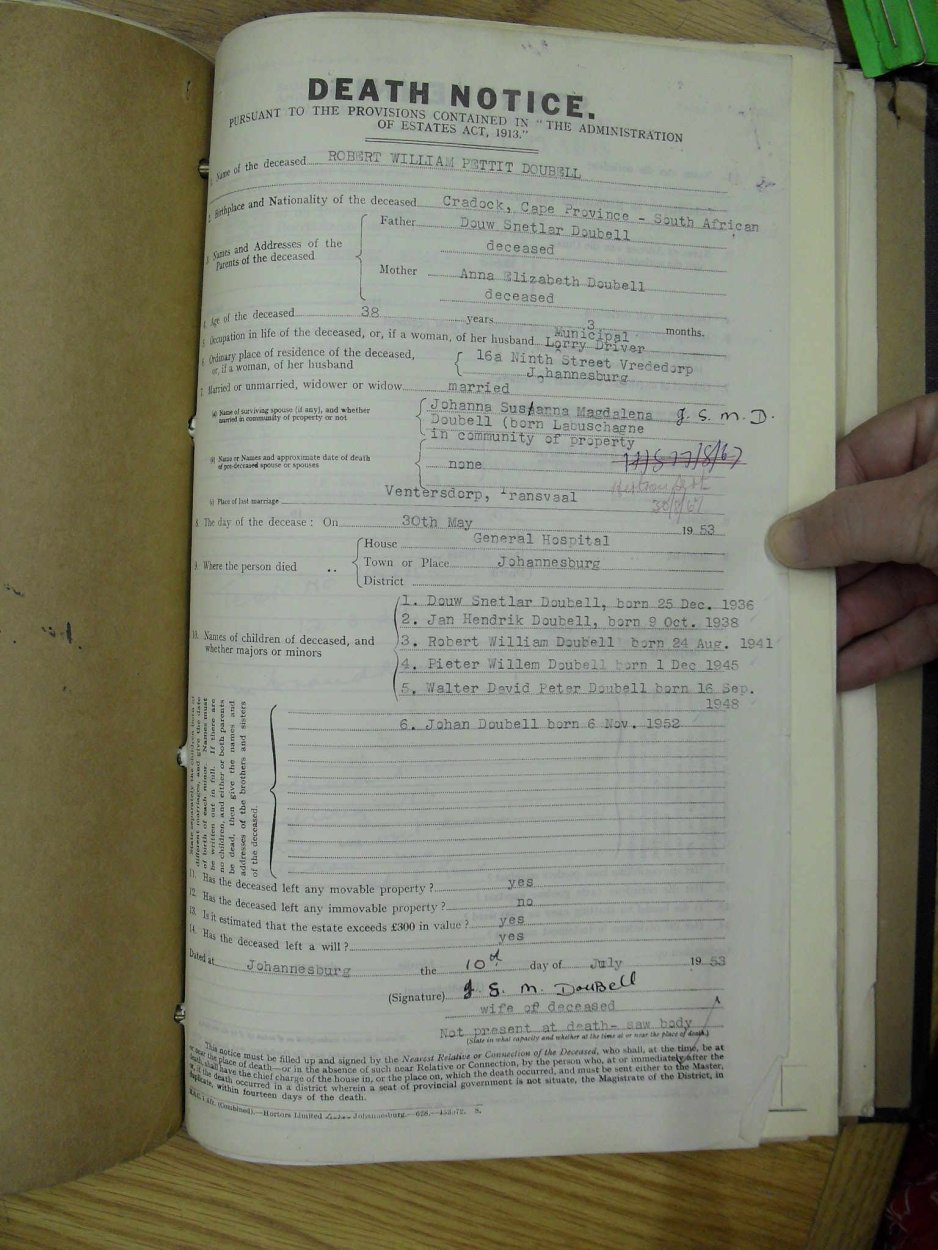 DEATH NOTICE.
PURSUANT TO THE PROVISIONS CONTAINED IN "THE ADMINISTRATION
OF ESTATES ACT, 1913."
1. Name of the deceased ROBERT WILLIAM PETTIT DOUBELL
2. Birthplace and Nationality of the deceased Cradock, Cape Province - South African
3. Names and Addresses of the Parents of the deceased
Father Douw Snetlar Doubell
deceased
Mother Anna Elizabeth Doubell
deceased
4. Age of the deceased 38 years 3 months.
5. Occupation in life of the deceased, or, if a woman, of her husband Municipal
Lorry Driver
6. Ordinary place of residence of the deceased, 16a Ninth Street Vrededorp
or, if a woman, of her husband Johannesburg
7. Married or unmarried, widower or widow married
(a) Name of surviving spouse (if any), and whether Johanna Susanna Magdalena J. S. M. D.
married in community of property or not Doubell (born Labuschagne
in community of property
(b) Name or Names and approximate date of death
of pre-deceased spouse or spouses none
30/8/67
(c) Place of last marriage Ventersdorp, Transvaal
8. The day of the decease: On 30th May 1953
9. Where the person died ..
House General Hospital
Town or Place Johannesburg
District
10. Names of children of deceased, and
whether majors or minors
1. Douw Snetlar Doubell, born 25 Dec. 1936
2. Jan Hendrik Doubell, born 9 Oct. 1938
3. Robert William Doubell born 24 Aug. 1941
4. Pieter Willem Doubell born 1 Dec 1945
5. Walter David Peter Doubell born 16 Sep.
1948
6. Johan Doubell born 6 Nov. 1952
State separately the children born of
different marriages, and give the date
of birth of each minor. Names must
be written out in full. If there are
no children, and either or both parents
be dead, then give the names and
addresses of the brothers and sisters
of the deceased.
11. Has the deceased left any movable property? yes
12. Has the deceased left any immovable property? no
13. Is it estimated that the estate exceeds £300 in value? yes
14. Has the deceased left a will? yes
Dated at Johannesburg the 10th day of July 1953
(Signature) J. S. M. DouBell
wife of deceased
Not present at death- saw body
(State in what capacity and whether at the time at or near the place of death.)
This notice must be filled up and signed by the Nearest Relative or Connection of the Deceased, who shall, at the time, be at
or near the place of death—or in the absence of such near Relative or Connection, by the person who, at or immediately after the
death, shall have the chief charge of the house in, or the place on, which the death occurred, and must be sent either to the Master,
or, if the death occurred in a district wherein a seat of provincial government is not situate, the Magistrate of the District, in
duplicate, within fourteen days of the death.
(Combined).—Hortors Limited Johannesburg.